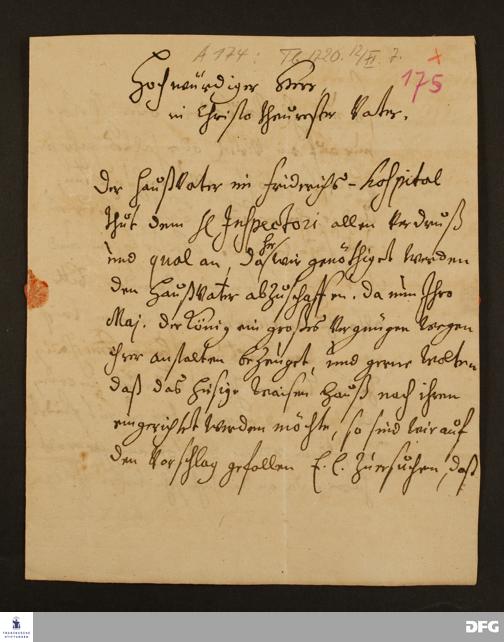 A 174: Tb 1720. 12/II 7.
175
Hochwürdiger Herr,
in Christo theurester Vater.
Der Haußvater im Friderichs-Hospital
thut dem H Inspectori allen Verdruß
und qual an, daher wir genöthiget werden
den Haußvater abzuschaffen. da nun Ihro
Maj. der König ein großes Vergnügen wegen
ihrer anstalten bezeuget, und gerne wolten
daß das hiesige Waisen Hauß nach ihren
eingerichtet werden möchte, so sind wir auf
den Vorschlag gefallen E. E. zu ersuchen, daß
FRANCKESCHE STIFTUNGEN
DFG